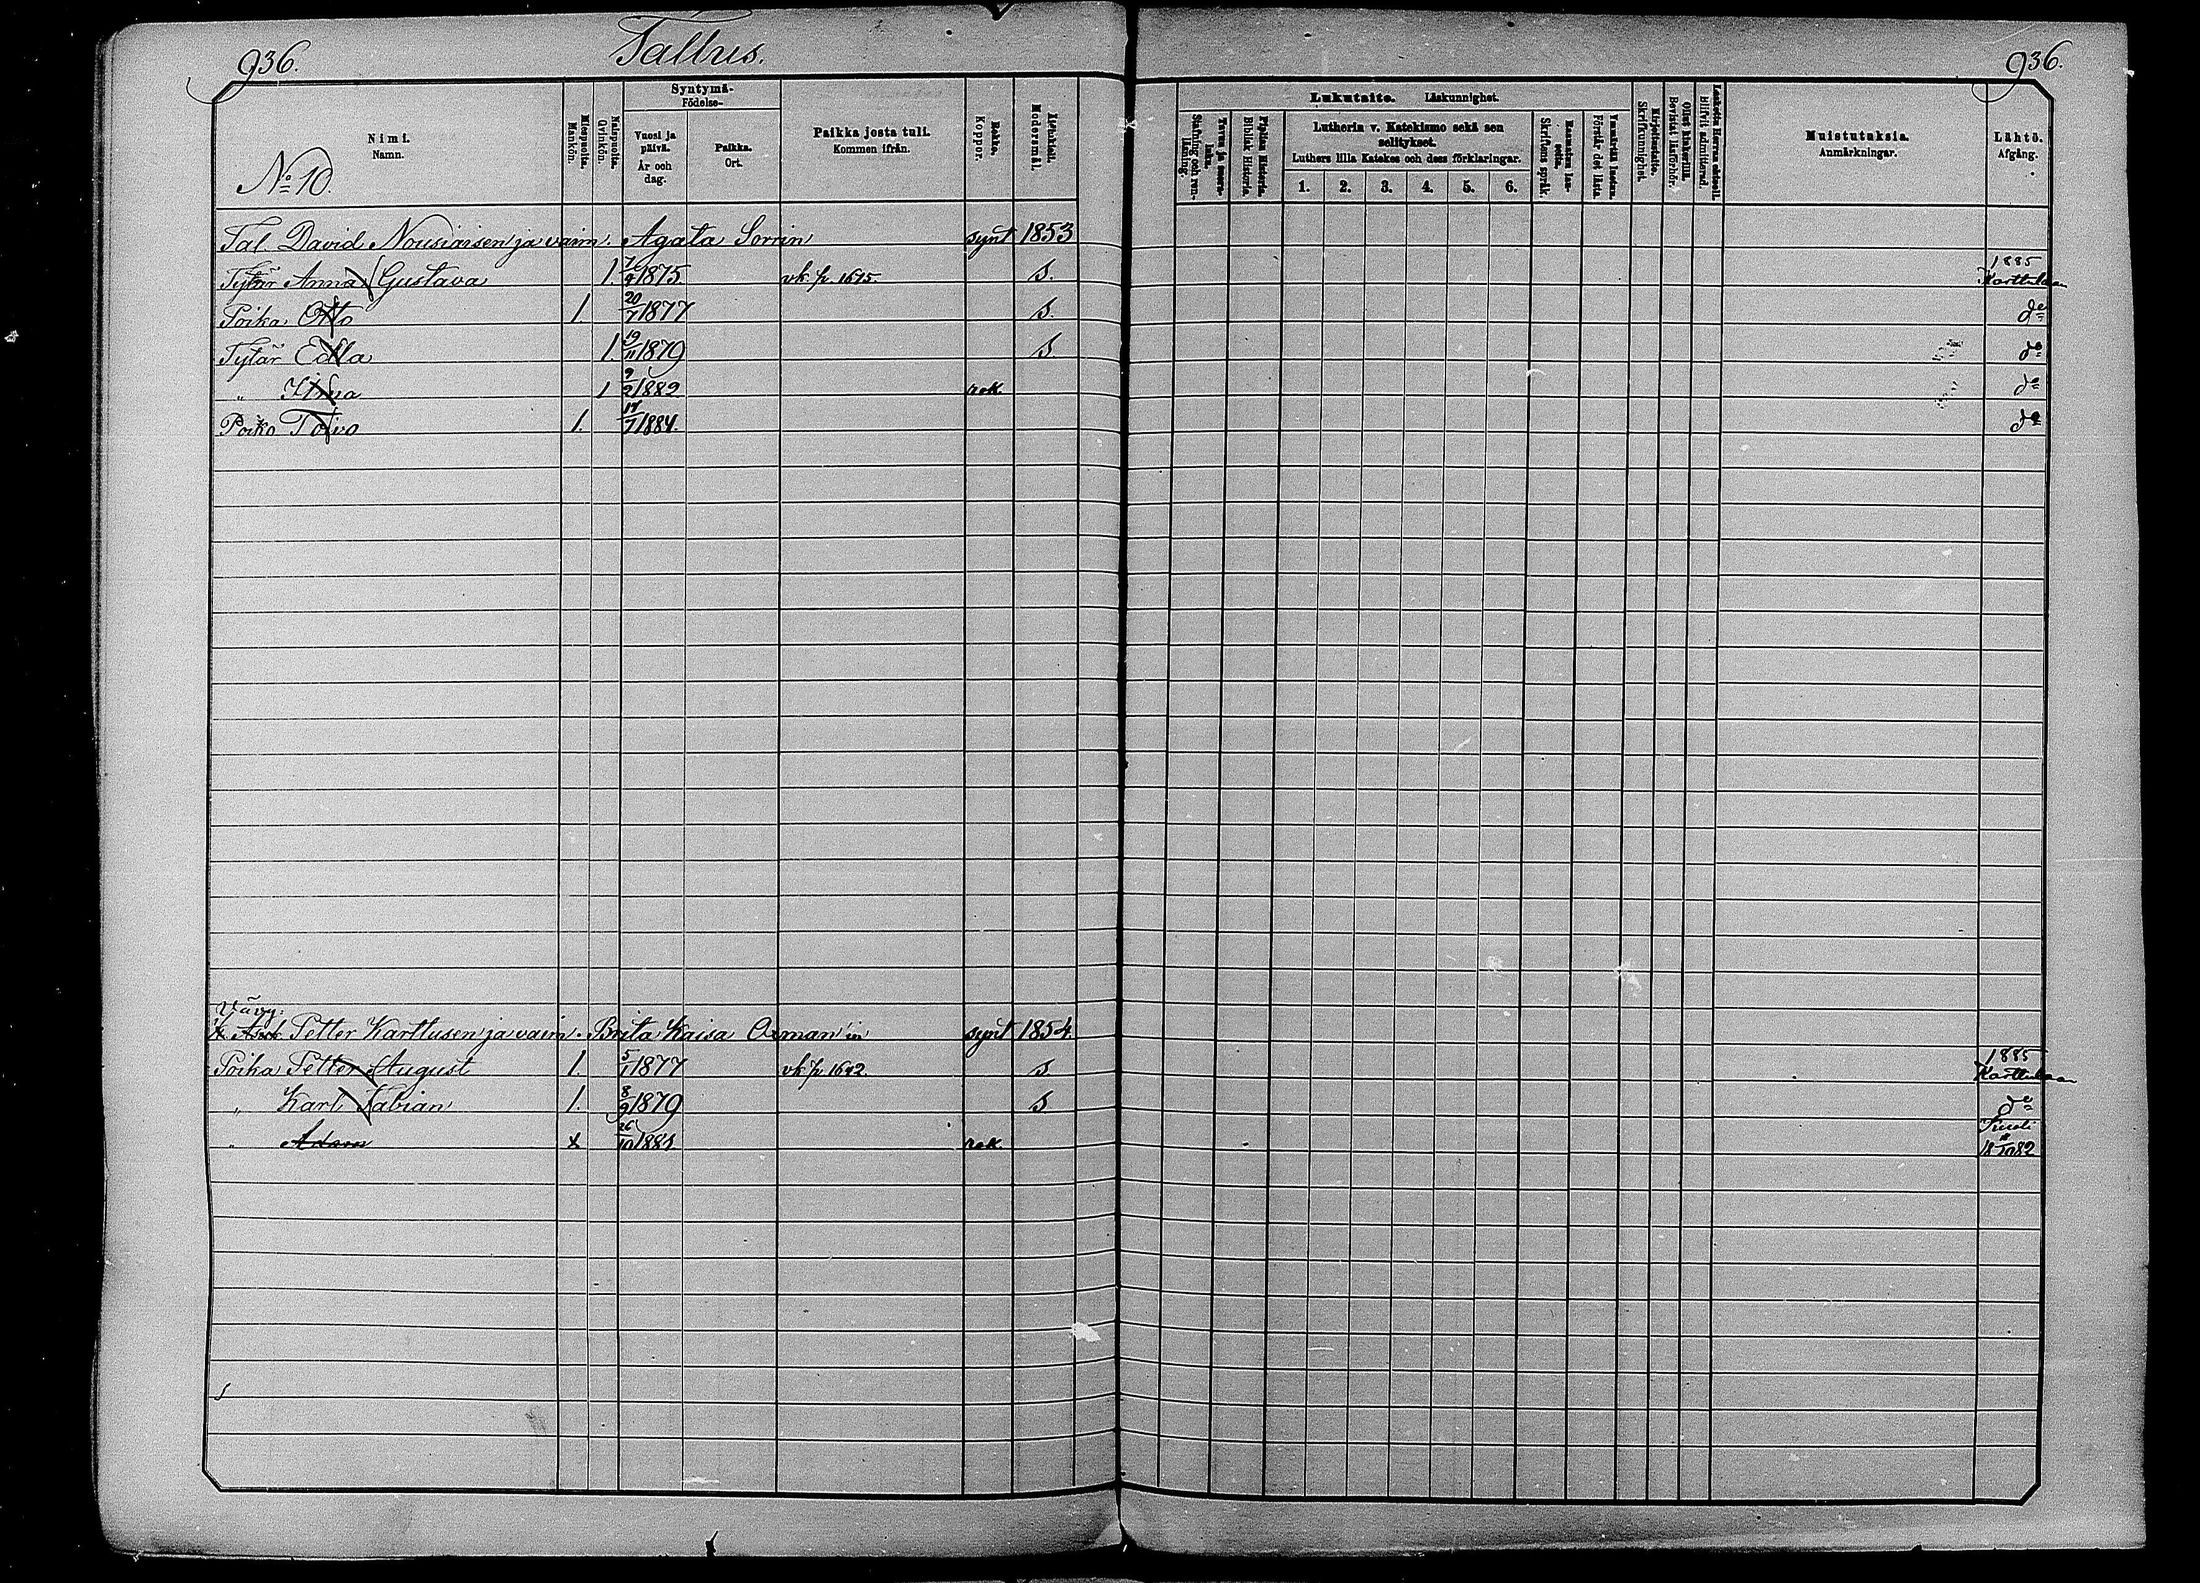 936.
Tallus.
936.
Nimi.
Namn.
No 10.
Miespuolia.
Mankön.
Naispuolia.
Qvinkön.
Syntymä-
Födelse-
Vuosi ja päivä.
År och dag.
Paikka.
Ort.
Paikka josta tuli.
Kommen ifrån.
Rokko.
Koppor.
Äidinkieli.
Modersmål.
Lukutaito. Läskunnighet.
Tavuu ja suora-luku.
Stafning och ren-läsning.
Piplian Historia.
Biblisk Historia.
Lutherin v. Katekismo sekä sen selitykset.
Luthers lilla Katekes och dess förklaringar.
1. 2. 3. 4. 5. 6.
Raamatun lau-seita.
Skriftens språk.
Ymmärtää luetun.
Förstår det lästa.
Kirjoitustaito.
Skrifkunnighet.
Ollut kinkerillä.
Bevistat läsförhör.
Laskettu Herran ehtooll.
Blifvit admitterad.
Muistutuksia.
Anmärkningar.
Lähtö.
Afgång.
Tal David Nousiaisen ja vaim. Agata Sorrin synt 1853
Tytär Anna Gustava 1. 7/4 1875. vk. p. 1675. S. 1885 Karttulaan
Poika Otto 1. 20/7 1877 S. do
Tytär Edla 1. 19/11 1879 S do
" Hilma 1 9/2 1882 rok. do
Poika Toivo 1. 17/7 1884. do
Vävy:
Petter Karttusen ja vaim. Brita Kaisa Oxman'in synt 1854.
Poika Petter August 1. 5/1 1877 vk p 1692. S 1885 Karttulaan
" Karl Fabian 1. 8/9 1879 S do
" Adam x 26/10 1881. rok. Kuoli 18 18/10 82